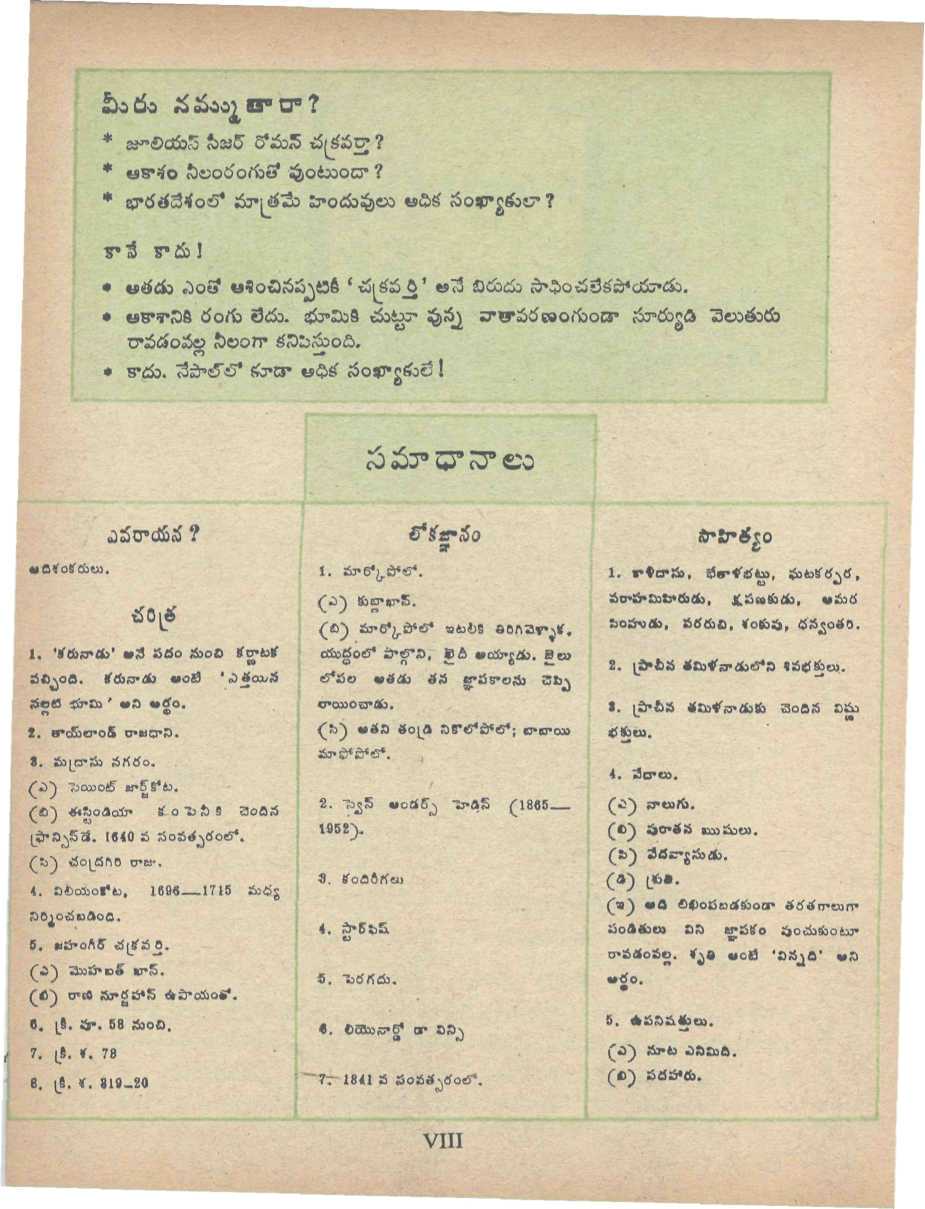 మీరు నమ్ముతారా?
* జూలియస్ సీజర్ రోమన్ చక్రవర్తా?
* ఆకాశం నీలంరంగుతో వుంటుందా?
* భారతదేశంలో మాత్రమే హిందువులు అధిక సంఖ్యాకులా?
కానే కాదు!
• అతడు ఎంతో ఆశించినప్పటికీ 'చక్రవర్తి' అనే బిరుదు సాధించలేకపోయాడు.
• ఆకాశానికి రంగు లేదు. భూమికి చుట్టూ వున్న వాతావరణంగుండా సూర్యుడి వెలుతురు
రావడంవల్ల నీలంగా కనిపిస్తుంది.
• కాదు. నేపాల్‌లో కూడా అధిక సంఖ్యాకులే!
సమాధానాలు
ఎవరాయన?
ఆదిశంకరులు.
చరిత్ర
1. 'కరునాడు' అనే పదం నుంచి కర్ణాటక
వచ్చింది. కరునాడు అంటే 'ఎత్తయిన
నల్లటి భూమి' అని అర్థం.
2. తాయ్‌లాండ్ రాజధాని.
3. మద్రాసు నగరం.
(ఎ) సెయింట్ జార్జ్‌కోట.
(బి) ఈస్టిండియా కంపెనీకి చెందిన
ఫ్రాన్సిస్‌డే. 1640 వ సంవత్సరంలో.
(సి) చంద్రగిరి రాజు.
4. విలియంకోట, 1696—1715 మధ్య
నిర్మించబడింది.
5. జహంగీర్ చక్రవర్తి.
(ఎ) మొహబత్ ఖాన్.
(బి) రాణి నూర్జహాన్ ఉపాయంతో.
6. క్రీ. పూ. 58 నుంచి.
7. క్రీ. శ. 78
8. క్రీ. శ. 319–20
లోకజ్ఞానం
1. మార్కోపోలో.
(ఎ) కుబ్లాఖాన్.
(బి) మార్కోపోలో ఇటలీకి తిరిగివెళ్ళాక,
యుద్ధంలో పాల్గొని, ఖైదీ అయ్యాడు. జైలు
లోపల అతడు తన జ్ఞాపకాలను చెప్పి
రాయించాడు.
(సి) అతని తండ్రి నికొలోపోలో; బాబాయి
మాఫోపోలో.
2. స్వెన్ అండర్స్ హెడిన్ (1865—
1952).
3. కందిరీగలు
4. స్టార్‌ఫిష్
5. పెరగదు.
6. లియొనార్డో డా విన్సి
7. 1841 వ సంవత్సరంలో.
సాహిత్యం
1. కాళిదాసు, భేతాళభట్టు, ఘటకర్పర,
వరాహమిహిరుడు, క్షపణకుడు, అమర
సింహుడు, వరరుచి, శంకువు, ధన్వంతరి.
2. ప్రాచీన తమిళనాడులోని శివభక్తులు.
3. ప్రాచీన తమిళనాడుకు చెందిన విష్ణు
భక్తులు.
4. వేదాలు.
(ఎ) నాలుగు.
(బి) పురాతన ఋషులు.
(సి) వేదవ్యాసుడు.
(డి) శ్రుతి.
(ఇ) అది లిఖింపబడకుండా తరతరాలుగా
పండితులు విని జ్ఞాపకం వుంచుకుంటూ
రావడంవల్ల. శృతి అంటే 'విన్నది' అని
అర్థం.
5. ఉపనిషత్తులు.
(ఎ) నూట ఎనిమిది.
(బి) పదహారు.
VIII